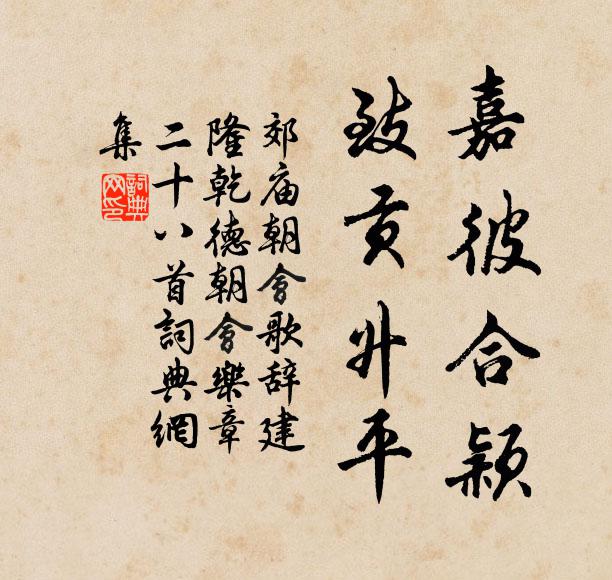 嘉彼合颖
致贡升平
郊庙朝会歌辞建
隆乾德朝会乐章
二十八首词典网
集
词典
网印